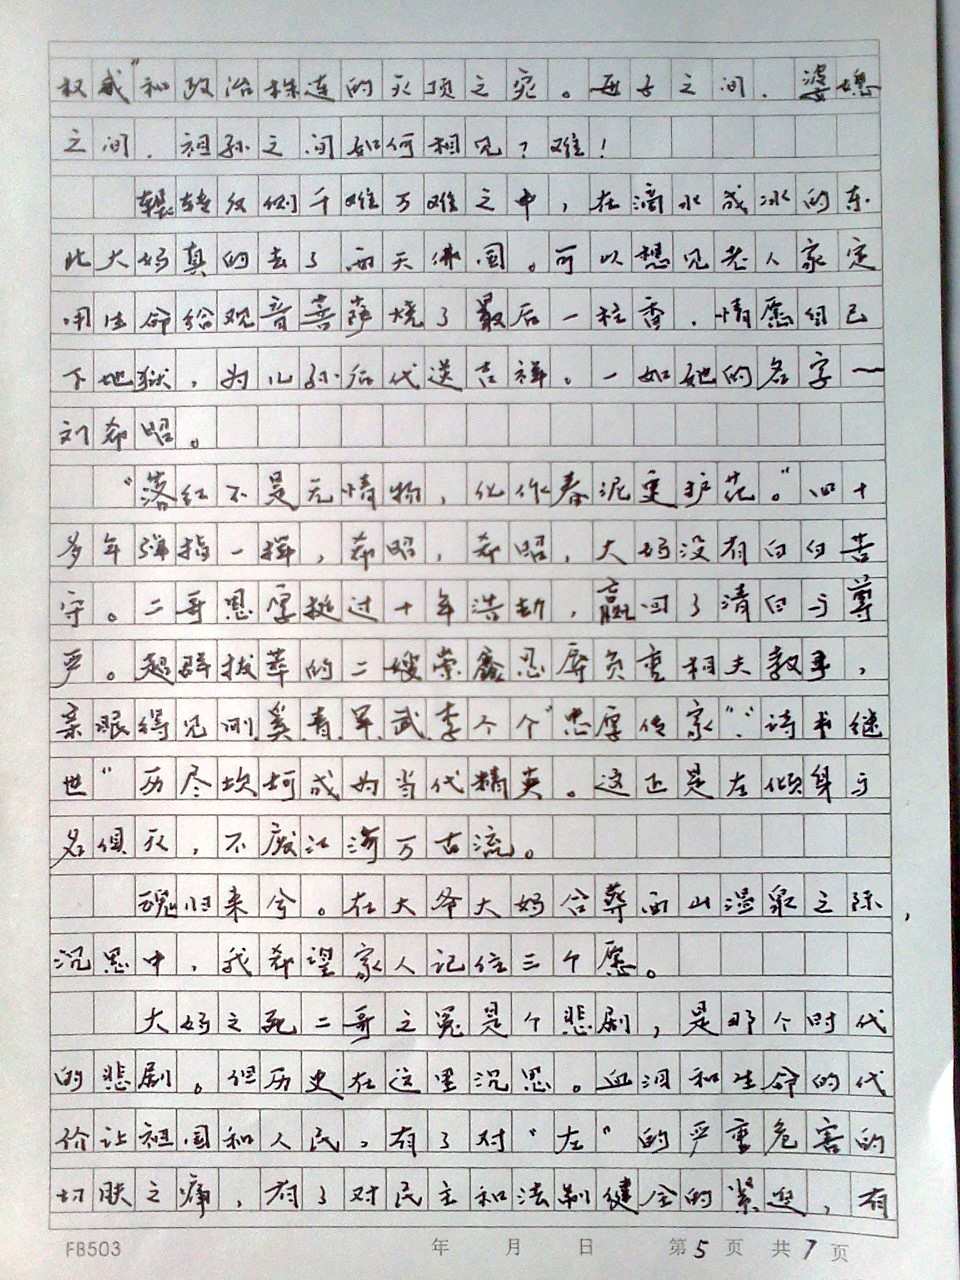 权威"和政治株连的灭顶之灾。母子之间.婆媳
之间.祖孙之间如何相见?难!
辗转反侧千难万难之中,在滴水成冰的东
北大妈真的去了西天佛国。可以想见老人家定
用生命给观音菩萨烧了最后一柱香.情愿自己
下地狱,为儿孙后代送吉祥。一如她的名字—
刘希昭。
"落红不是无情物,化作春泥更护花。"四十
多年弹指一挥,希昭,希昭,大妈没有白白苦
守。二哥恩厚挺过十年浩劫,赢回了清白与尊
严。超群拔萃的二嫂崇 忍辱负重相夫教子,
亲眼得见刚.奚.青.军.武.李个个"忠厚传家".诗书继
世"历尽坎坷成为当代精英。这正是左倾身与
名俱灭,不废江河万古流。
魂归来兮。在大爷大妈合葬西山温泉之际,
沉思中,我希望家人记住三个愿。
大妈之死二哥之冤是个悲剧,是那个时代
的悲剧。但历史在这里沉思。血泪和生命的代
价让祖国和人民,有了对"左"的严重危害的
切肤之痛,有了对民主和法制健全的紧迫,有
FB503 年 月 日 第5页 共7页